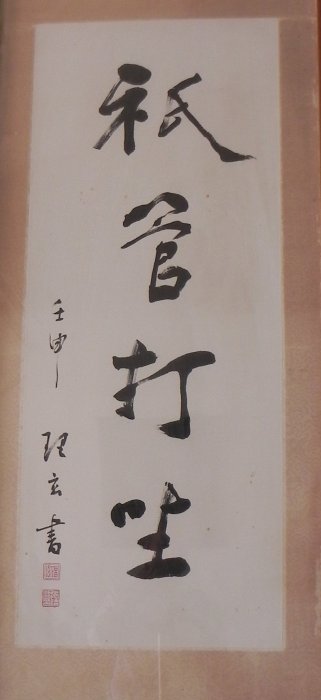 祗管打坐
壬申 理玄書